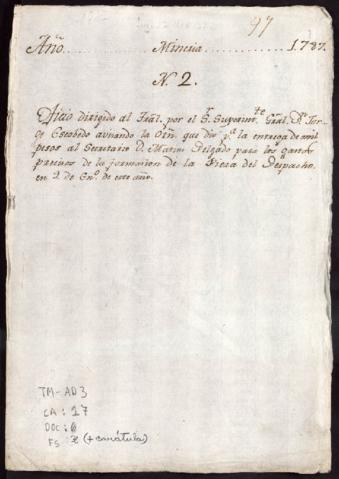 97
Año ..... Mineria ..... 1.787.
N. 2.
Oficio dirigido al Tral. por el Sr. Superint.te Gral. Dn. Jor-
ge Escobedo avisando la Orn. que dio pa. la entrega de mil
pesos al Secretario D. Martin Delgado para los gastos
precisos de la formacion de la Pieza del Despacho
en 2 de En.o de este año.
TM-AD3
CA: 17
DOC: 6
FS: (+ carátula)